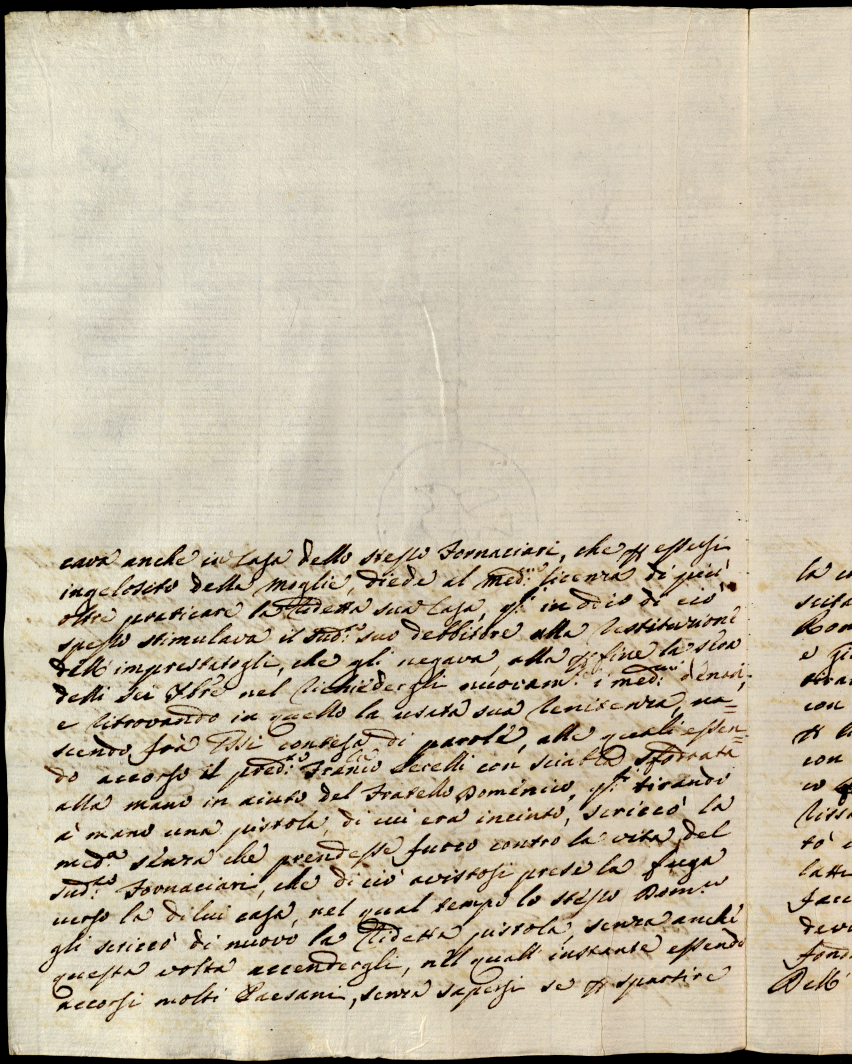 cava anche in Casa dello stesso Fornaciari, che p essersi
ingelosito della moglie, diede al med:mo licenza di più
oltre praticare la ridetta sua Casa, q:li in odio di ciò
spesso stimulava il sud:to suo debbitore alla restituzione
dell'imprestatogli, che gli negava, alla p fine la sera
delli sei 8bre nel richiedergli nuovam:te i med:mi denari,
e ritrovando in quello la usata sua renitenza, na=
scendo frà Essi contesa di parole, alle quali essen=
do accorso il pred:to Franco Lerelli con sciabla sfodrata
alla mano in aiuto del Fratello Domenico, q:ti tirando
à mano una pistola, di cui era incinto, scriccò la
med:ma senza che prendesse fuoco contro la vita del
sud:to Fornaciari, che di ciò avistosi prese la fuga
verso la di lui casa, nel qual tempo lo stesso Dom:co
gli scriccò di nuovo la ridetta pistola, senza anche
questa volta accendergli, nel quall'instante essendo
accorsi molti Paesani, senza sapersi se p spartire
la
con
p
con
Dell'